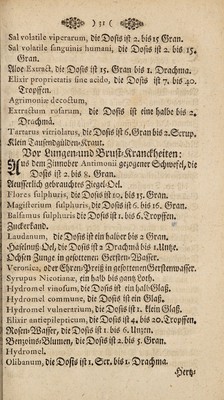 ) 31 (
Sal volatile viperarum, die Dosis ist 2. bis 15 Gran.
Sal volatile sanguinis humani, die Dosis ist 2. bis 15.
Gran.
Aloe Extract, die Dosis ist 15. Gran bis 1. Drachma.
Elixir proprietatis sine acido, die Dosis ist 7. bis 40.
Tropffen.
Agrimoniæ decoctum,
Extractum rosarum, die Dosis ist eine halbe bis 2.
Drachmâ.
Tartarus vitriolatus, die Dosis ist 6. Gran bis 2. Scrup.
Klein Tausendgülden-Kraut.
Vor Lungen und Brust-Kranckheiten:
Aus dem Zinnober Antimonii gezogener Schwefel, die
Dosis ist 2. bis 8. Gran.
Aeusserlich gebrauchtes Ziegel-Oel.
Flores sulphuris, die Dosis ist 10. bis 15. Gran.
Magisterium sulphuris, die Dosis ist 6. bis 16. Gran.
Balsamus sulphuris die Dosis ist 1. bis 6. Tropffen.
Zuckerkand.
Laudanum, die Dosis ist ein halber bis 2 Gran.
Haselnuß-Oel, die Dosis ist 2 Drachmâ bis 1. Untze.
Ochsen Zunge in gesottenen Gersten-Wasser.
Veronica, oder Ehren-Preiß in gesottenen Gerstenwasser.
Syrupus Nicotianæ, ein halb bis gantz Loth.
Hydromel vinosum, die Dosis ist ein halb Glaß.
Hydromel commune, die Dosis ist ein Glaß.
Hydromel vulnerarium, die Dosis ist 1. klein Glaß.
Elixir antiepilepticum, die Dosis ist 4. bis 20. Tropffen.
Rosen-Wasser, die Dosis ist 1. bis 6. Untzen.
Benzoins-Blumen, die Dosis ist 2. bis 5. Gran.
Hydromel.
Olibanum, die Dosis ist 1. Scr. bis 1. Drachma.
Hertz-